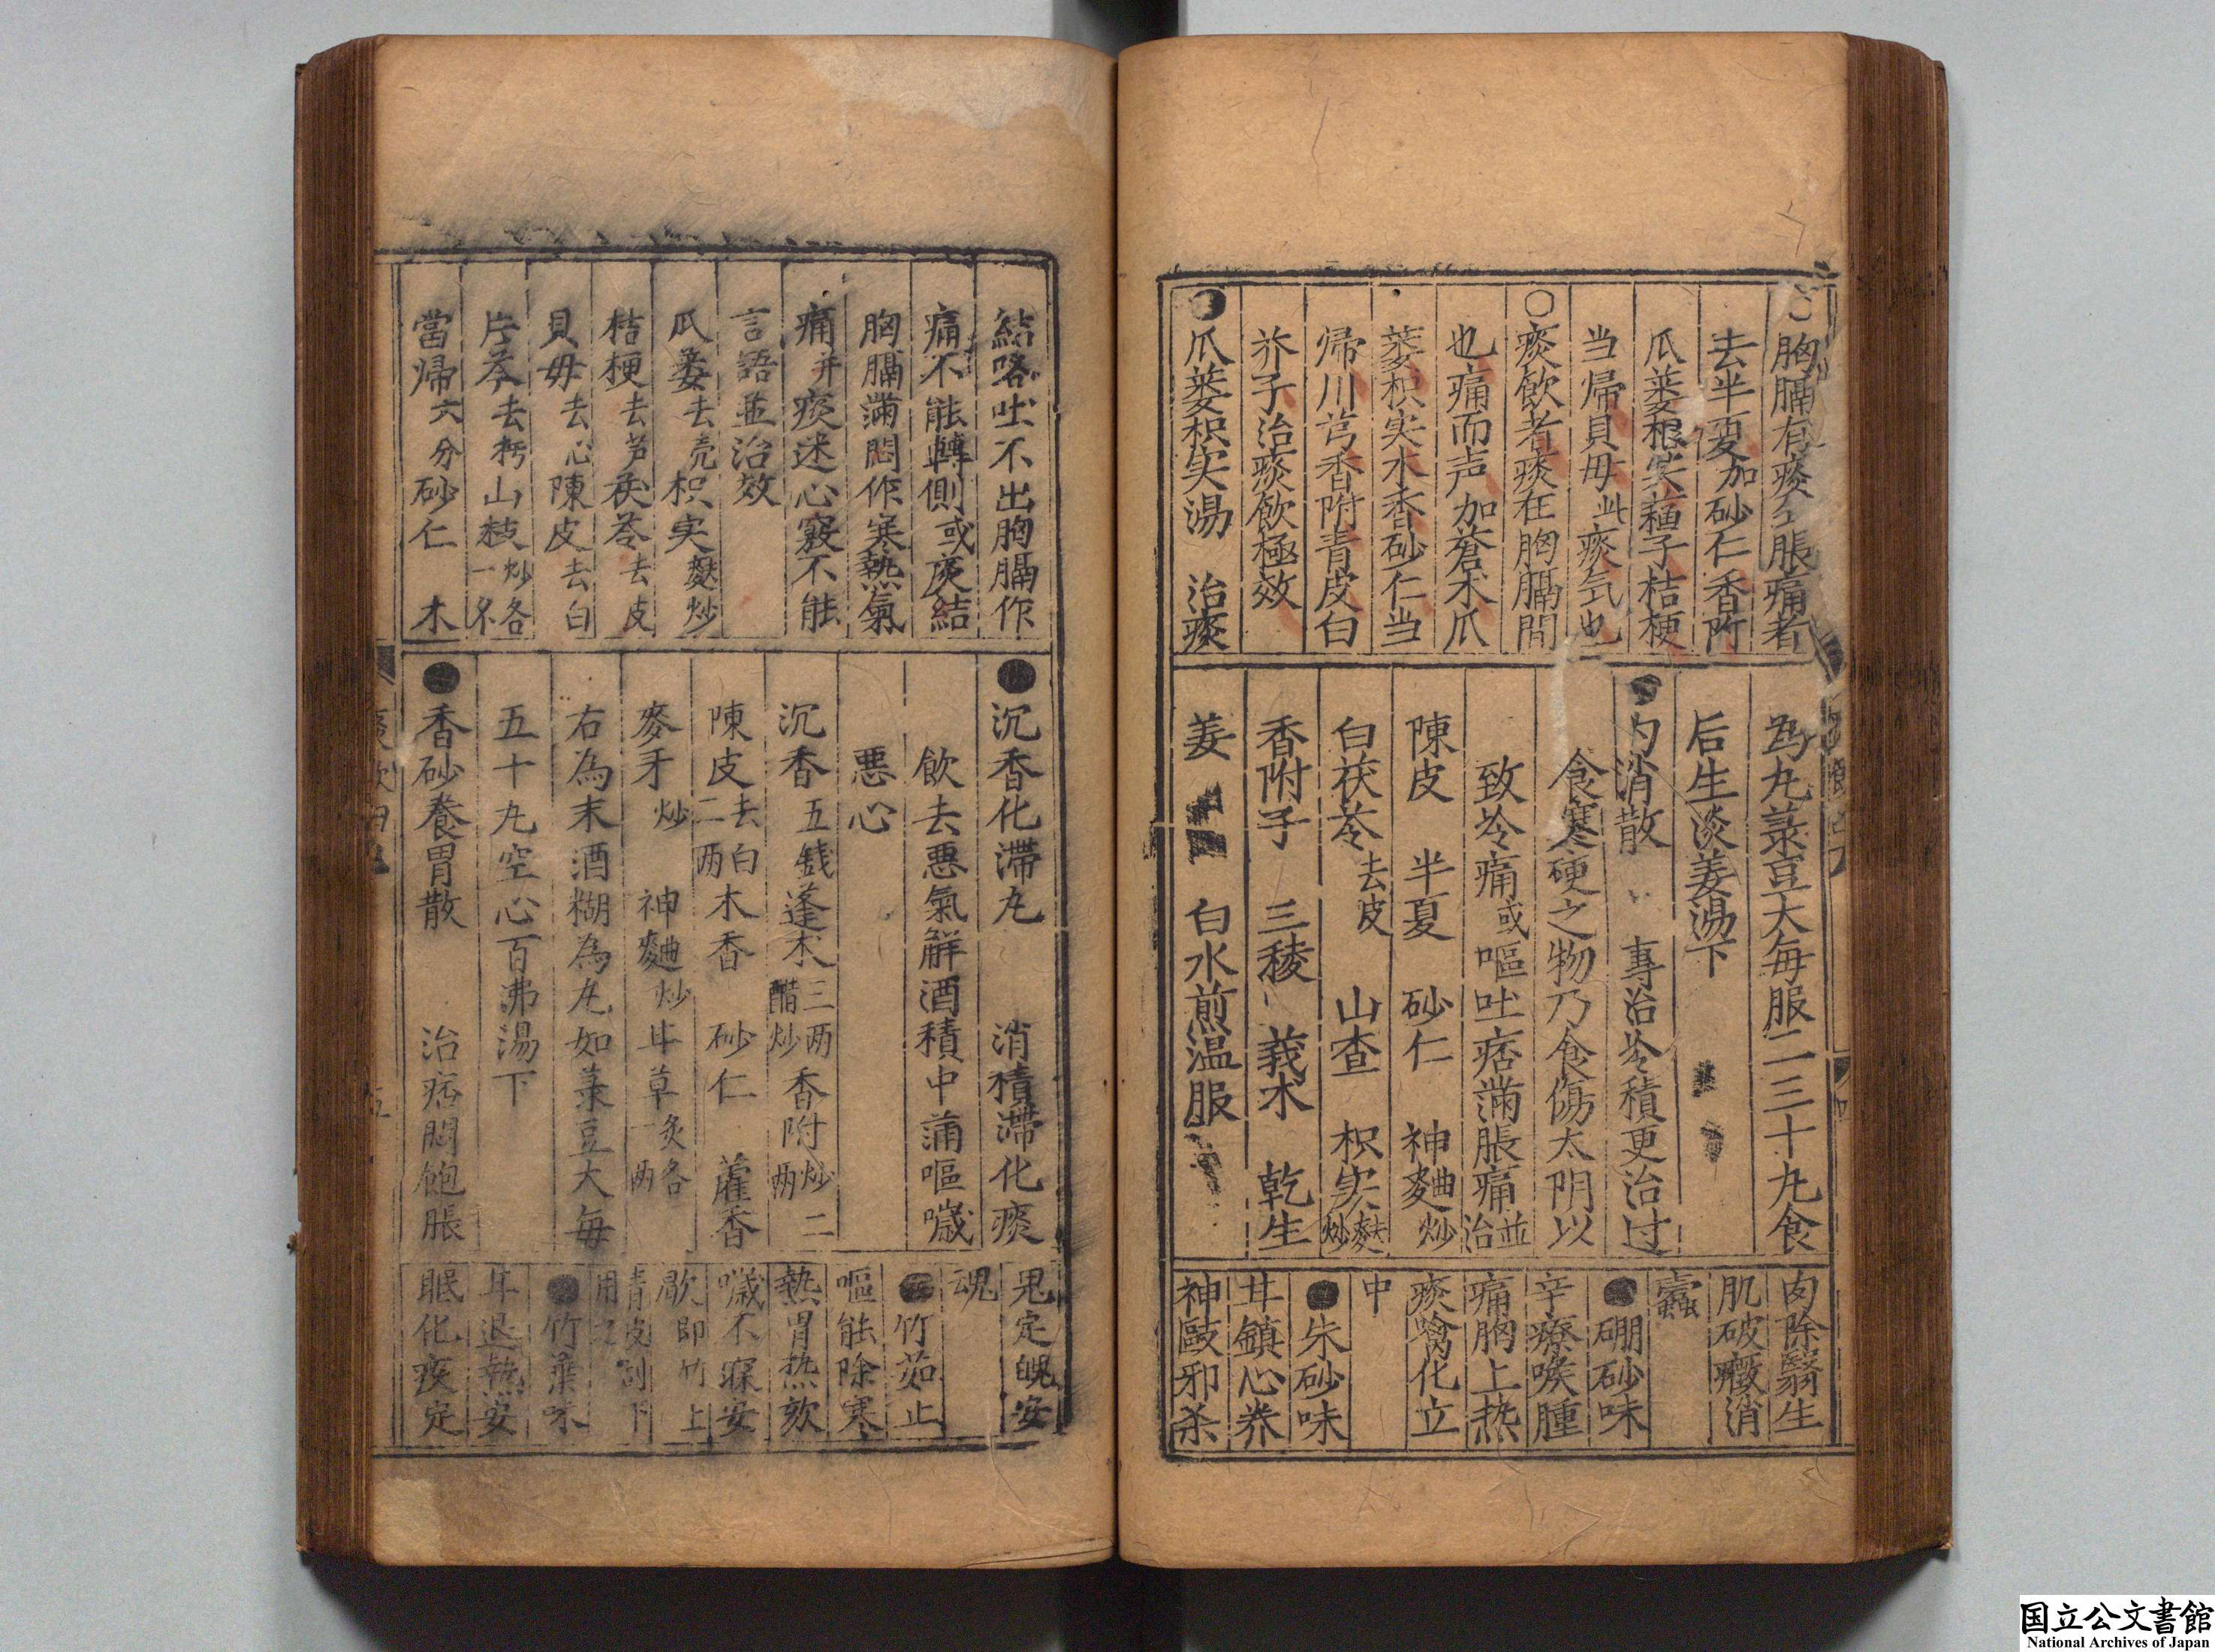 胸膈有痰多脹痛者
去半夏加砂仁香附
瓜蔞根実蘓子桔梗
当帰貝毋此痰気也
痰飲者痰在胸膈間
也痛而声加蒼朮瓜
蔞枳実木香砂仁当
帰川芎香附青皮白
芥子治痰飲極效
瓜蔞枳実湯 治痰
為丸菉豆大每服二三十丸食
后生淡姜湯下
内消散 專治冷積更治过
食寒硬之物乃食傷太阴以
致冷痛或嘔吐痞滿脹痛並治
陳皮 半夏 砂仁 神麯炒
白茯苓去皮 山查 枳実麩炒
香附子 三稜 義朮 乾生
姜 白水煎温服
肉除翳生
肌破癥消
蠹
硼砂味
辛療喉腫
痛胸上热
痰噙化立
中
朱砂味
甘鎮心养
神敺邪杀
結咯吐不出胸膈作
痛不能轉側或痰結
胸膈滿悶作寒熱氣
痛并痰迷心竅不能
言語並治效
瓜蔞去壳枳実麩炒
桔梗去芦茯苓去皮
貝毋去心陳皮去白
片芩去朽山梔炒各一个
當帰六分砂仁 木
沉香化滯丸 消積滯化痰
飲去悪氣觧酒積中蒲嘔噦
悪心
沉香五錢蓬朮三两醋炒香附炒二两
陳皮去白二两木香 砂仁 藿香
麥牙炒 神麯炒甘草炙各一两
右為末酒糊為丸如菉豆大每
五十丸空心百沸湯下
香砂養胃散 治痞悶飽脹
鬼定魄安
魂
竹茹止
嘔能除寒
熱胃热欬
噦不寐安
歇即竹上
青皮刮下
用之
竹葉味
甘退熱安
眠化痰定
国立公文書館
National Archives of Japan